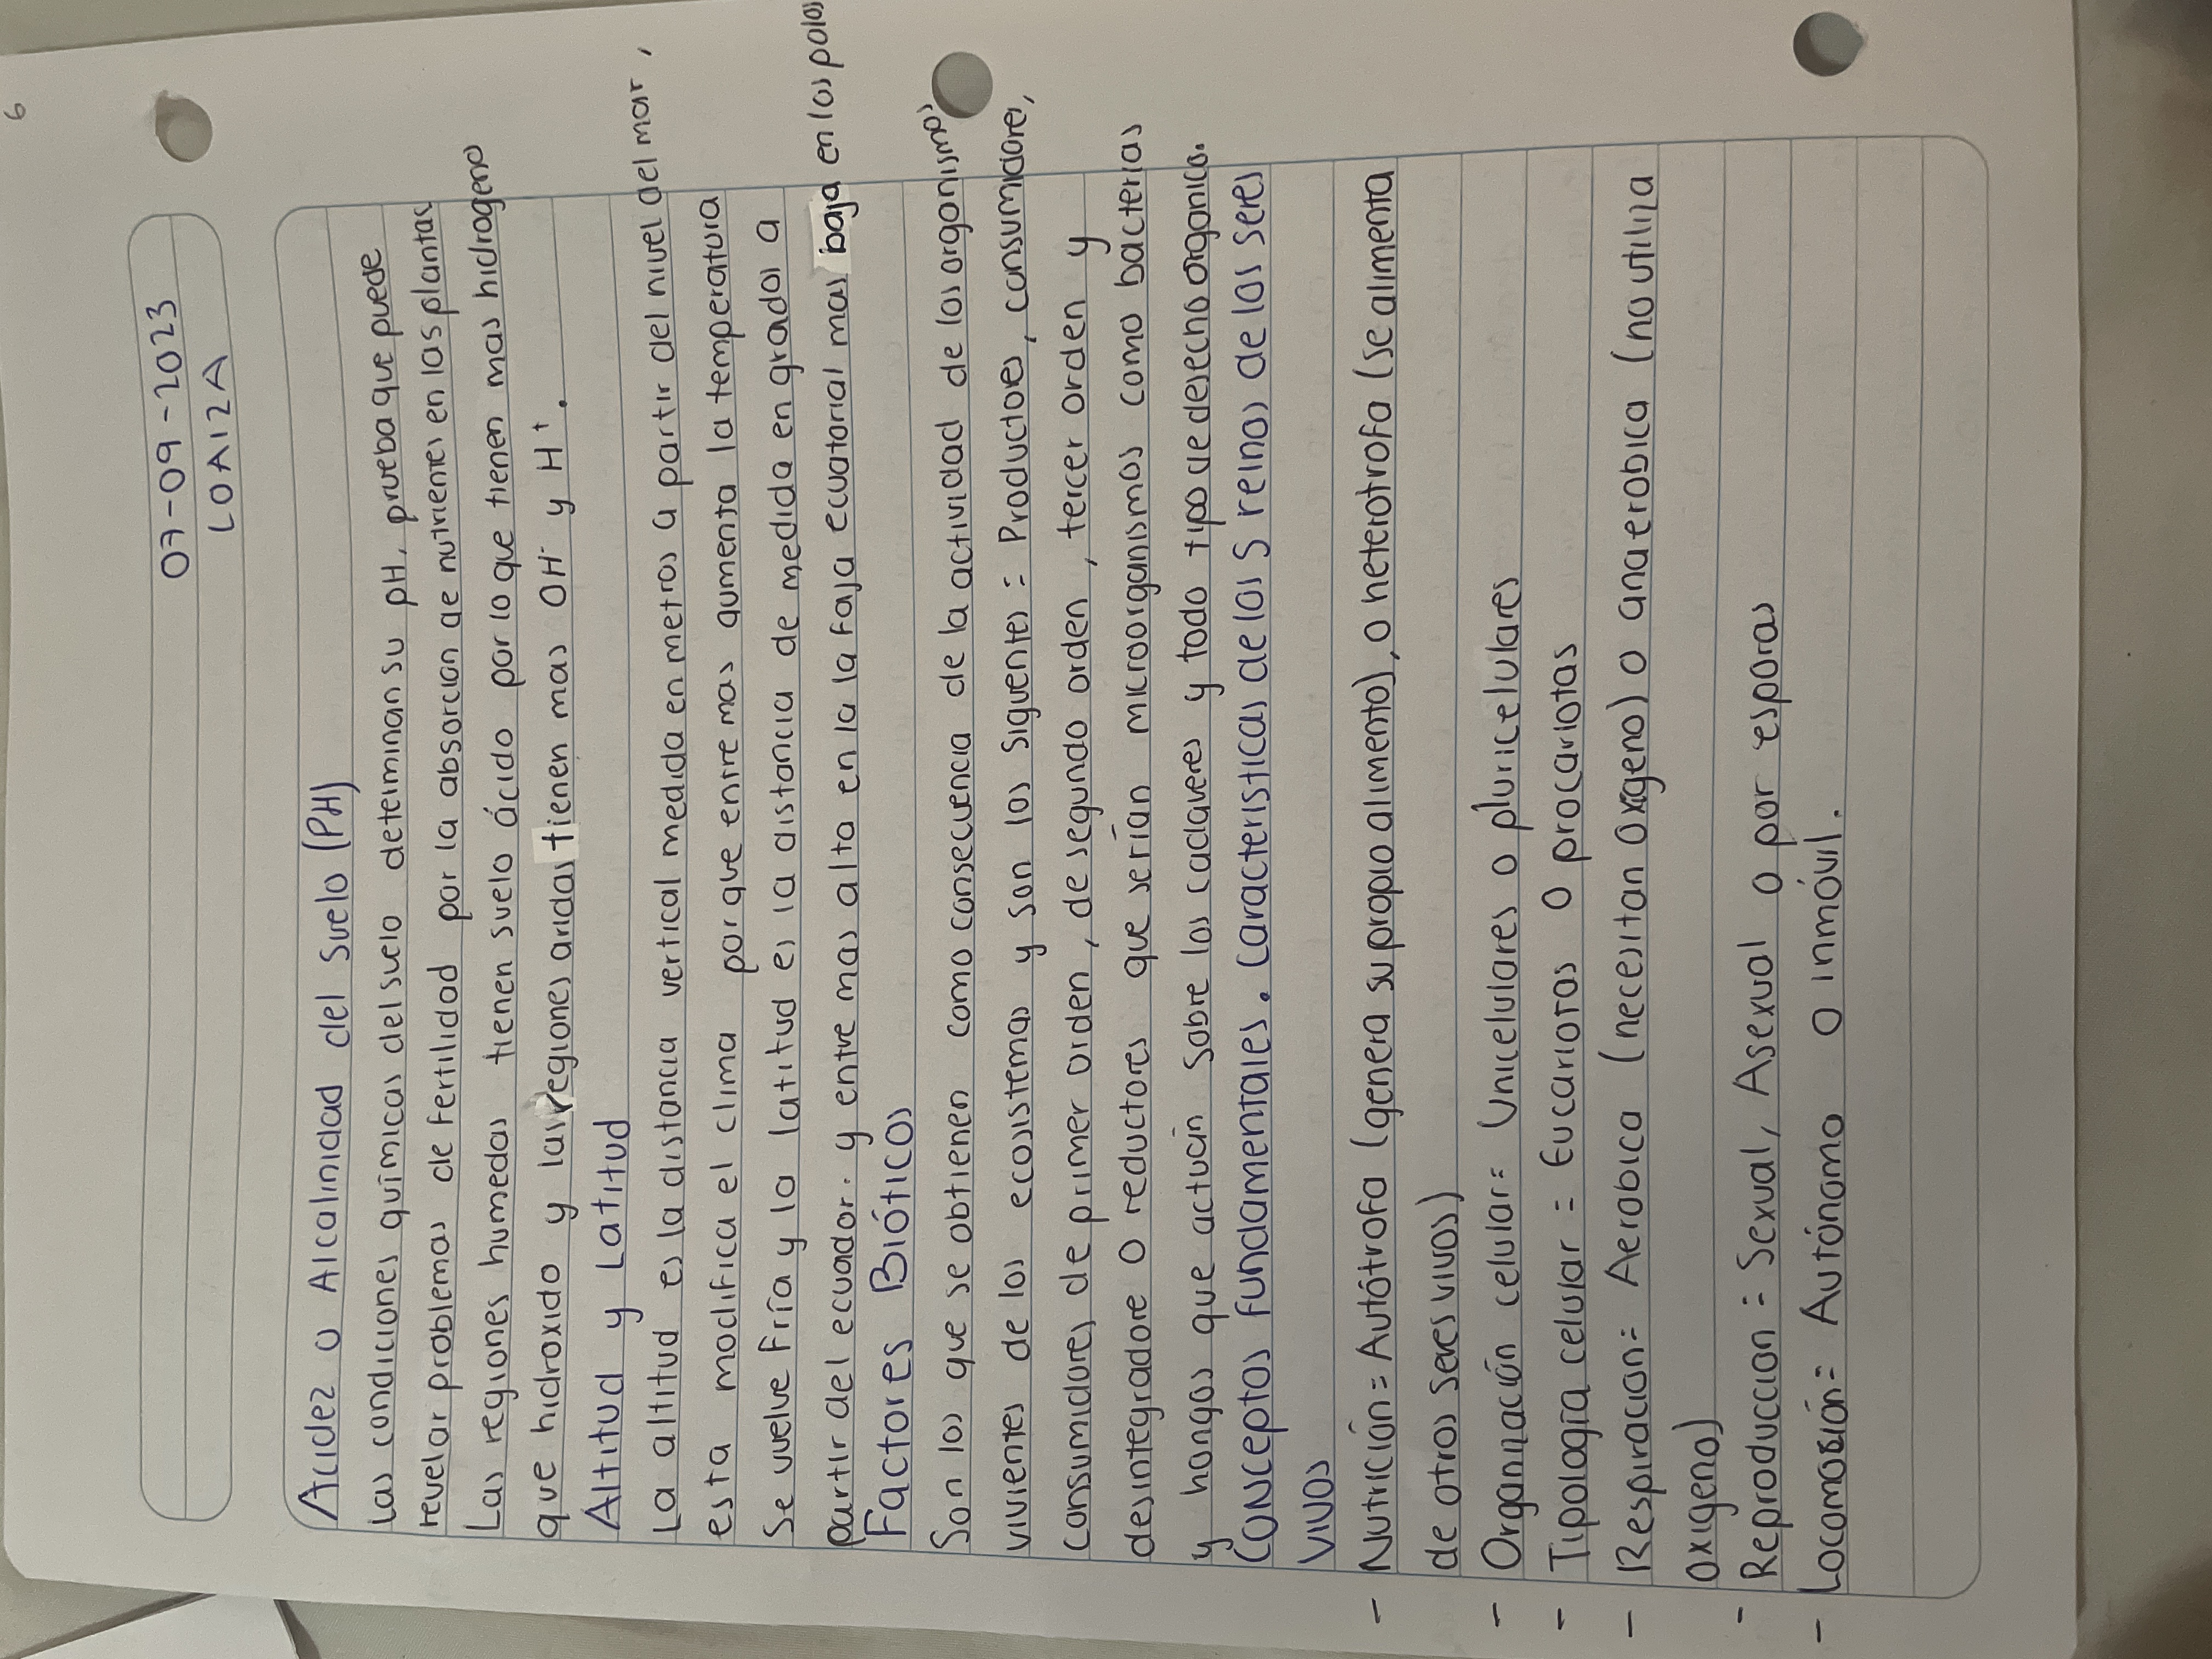 6
07-09-2023
LOAIZA
Acidez o Alcalinidad del Suelo (PH)
Las condiciones químicas del suelo determinan su pH, prueba que puede
revelar problemas de fertilidad por la absorcion de nutrientes en las plantas
Las regiones humedas tienen suelo ácido por lo que tienen mas hidrogeno
que hidroxido y las regiones aridas tienen mas OH⁻ y H⁺.
Altitud y Latitud
La altitud es la distancia vertical medida en metros a partir del nivel del mar,
esta modifica el clima porque entre mas aumenta la temperatura
Se vuelve fría y la latitud es la distancia de medida en grados a
partir del ecuador. y entre mas alta en la faja ecuatorial mas baja en los polos
Factores Bióticos
Son los que se obtienen como consecuencia de la actividad de los organismos
vivientes de los ecosistemas y son los siguentes: Productores, consumidores,
consumidores de primer orden, de segundo orden, tercer orden y
desintegradore o reductores que serían microorganismos como bacterias
y hongos que actuán sobre los cadaveres y todo tipo de desecho organico.
Conceptos fundamentales. Caracteristicas de los 5 reinos de los seres
vivos
- Nutrición= Autótrofa (genera su propio alimento), o heterotrofa (se alimenta
de otros seres vivos)
- Organización celular= Unicelulares o pluricelulares
- Tipología celular = Eucariotas o procariotas
- Respiracion= Aerobica (necesitan oxigeno) o anaerobica (no utiliza
oxigeno)
- Reproduccion= Sexual, Asexual o por esporas
- Locomosión= Autónomo o inmóvil.